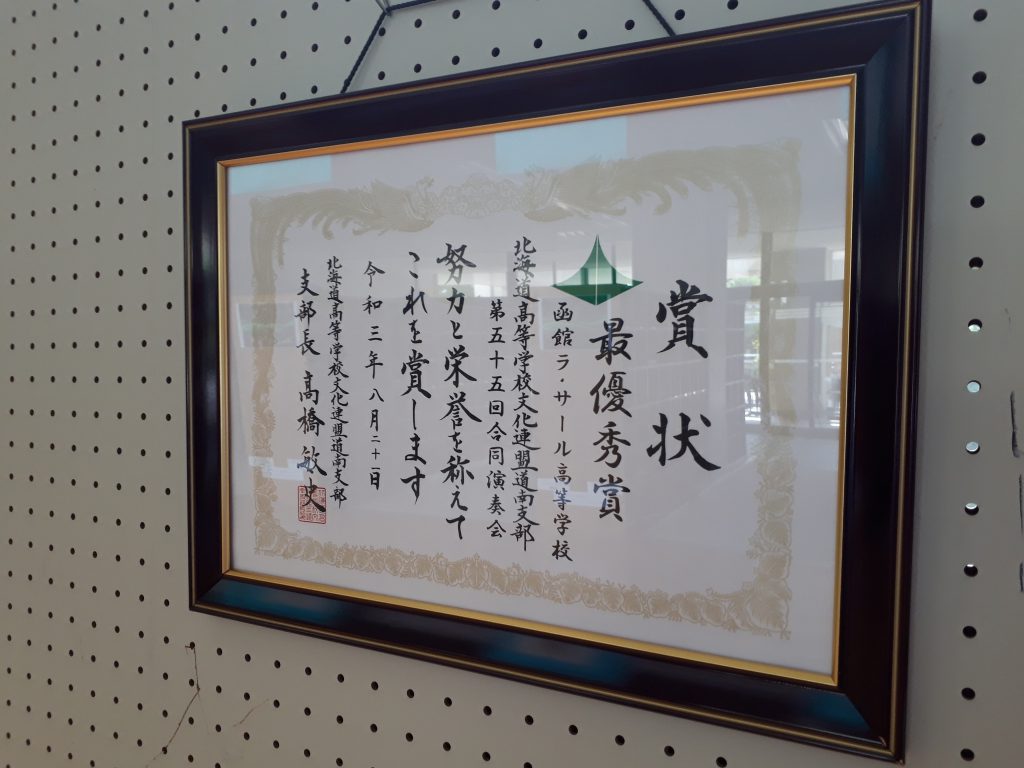 賞状
最優秀賞
函館ラ・サール高等学校
北海道高等学校文化連盟道南支部
第五十五回合同演奏会
努力と栄誉を称えて
これを賞します
令和三年八月二十二日
北海道高等学校文化連盟道南支部
支部長 高橋敏史